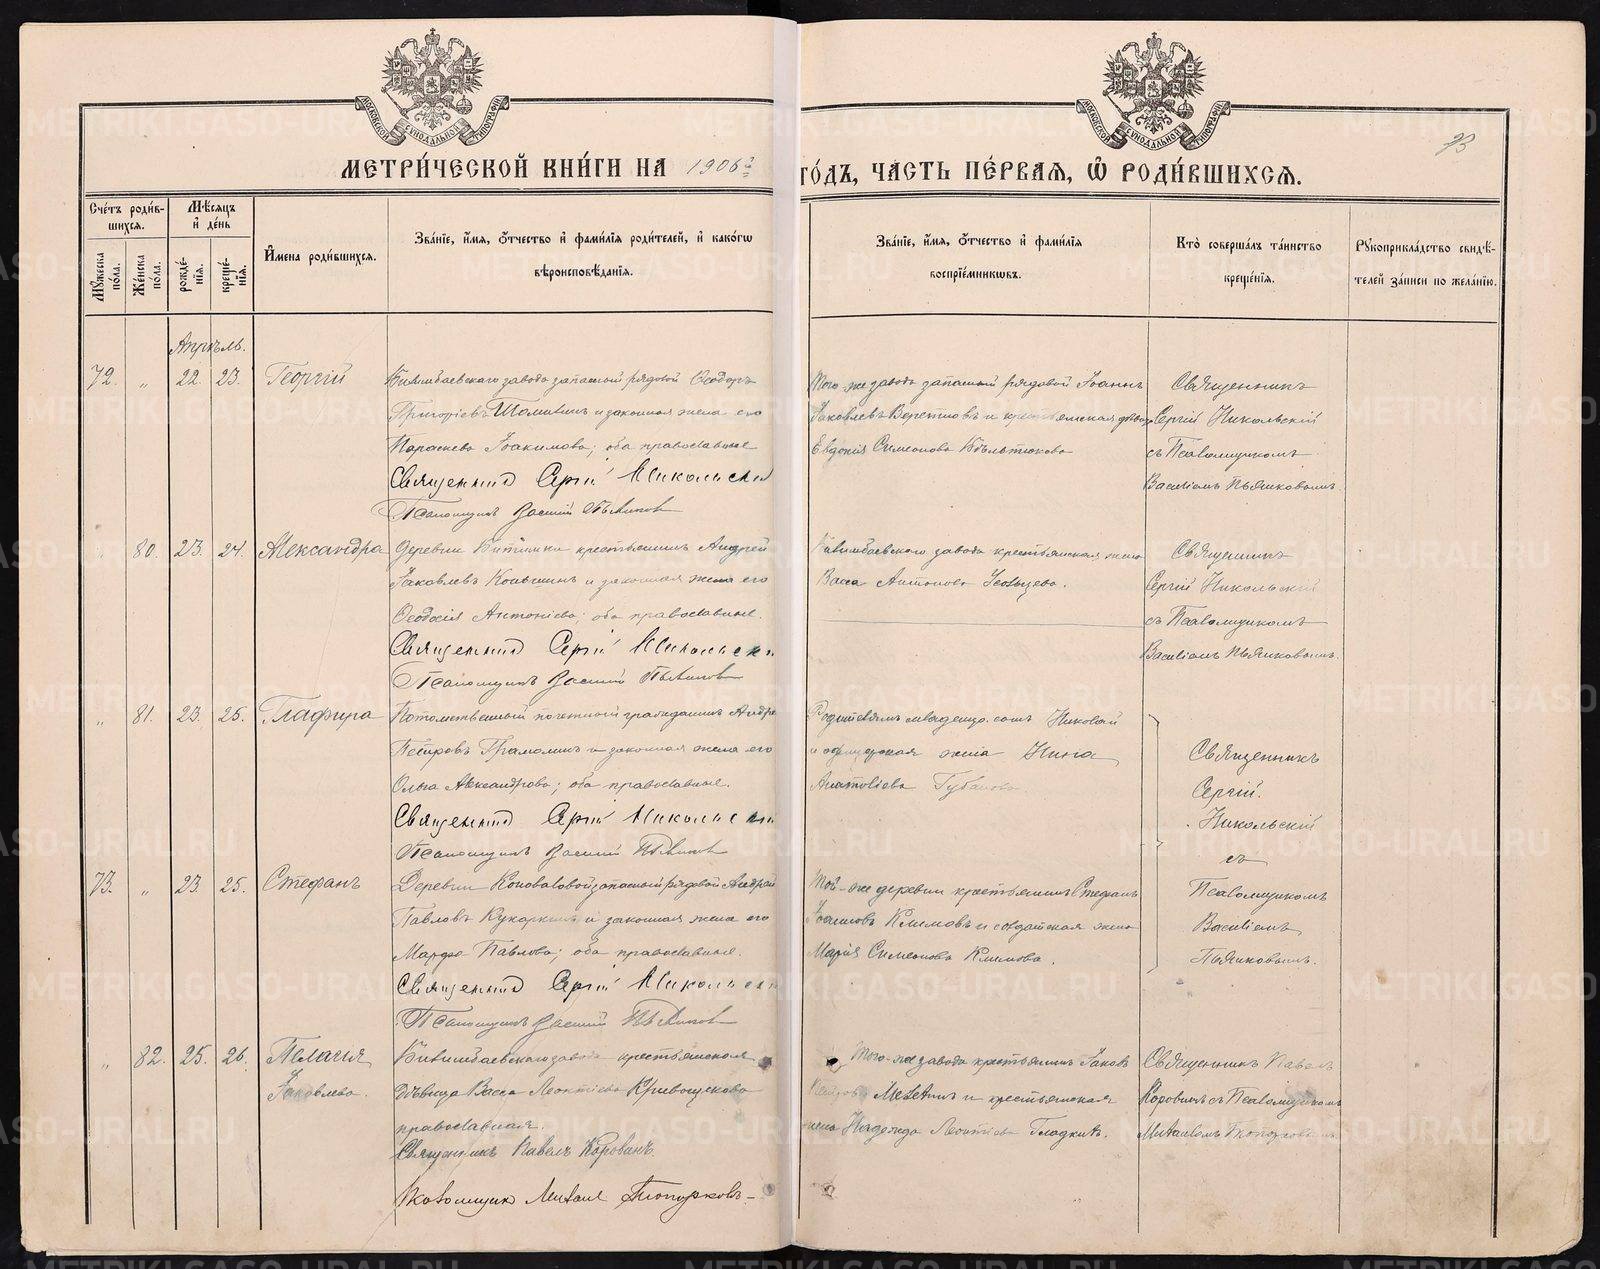 МОСКОВСКОЙ СѴНОДАЛЬНОЙ ТИПОГРАФІИ
МОСКОВСКОЙ СѴНОДАЛЬНОЙ ТИПОГРАФІИ
73
МЕТРИ́ЧЕСКОЙ КНИ́ГИ НА 1906 г. ГО́ДЪ, ЧА́СТЬ ПЕ́РВАЯ, Ѽ РОДИ́ВШИХСЯ.
Сче́тъ роди́вшихся.
Мѣ́сяцъ и де́нь
Му́жеска по́ла.
Же́нска по́ла.
рожде́нія.
креще́нія.
Имена роди́вшихся.
Зва́ніе, и́мя, о́тчество и фами́лія роди́телей, и како́гѡ вѣроисповѣ́данія.
Зва́ніе, и́мя, о́тчество и фами́лія воспріе́мникѡвъ.
Кто̀ соверша́лъ та́инство креще́нія.
Рукоприкла́дство свидѣ́телей за́писи по жела́нію.
Апрѣль.
72. „ 22. 23. Георгій
Билимбаевскаго завода запасный рядовой Ѳеодоръ
Григорьевъ и законная жена его
Параскева Іоакимова; оба православные
Священникъ Сергій Никольскій
Псаломщикъ Василій Пьянковъ
Того же завода запасный рядовой Іоаннъ
Іаковлевъ и крестьянская дѣвица
Евдокія Симеонова
Священникъ
Сергій Никольскій
съ Псаломщикомъ
Василіемъ Пьянковымъ.
„ 80. 23. 24. Александра
Деревни крестьянинъ Андрей
Іаковлевъ и законная жена его
Ѳеодосія Антоніева; оба православные.
Священникъ Сергій Никольскій
Псаломщикъ Василій Пьянковъ
Билимбаевскаго завода крестьянская жена
Васса Антонова
Священникъ
Сергій Никольскій
съ Псаломщикомъ
Василіемъ Пьянковымъ.
„ 81. 23. 25. Глафира
Потомственный почетный гражданинъ Андрей
Петровъ и законная жена его
Ольга Александрова; оба православные.
Священникъ Сергій Никольскій
Псаломщикъ Василій Пьянковъ
сынъ Николай
и жена Нина
Анатоліева Губанова
Священникъ
Сергій
Никольскій
съ
Псаломщикомъ
Василіемъ
Пьянковымъ.
73. „ 23. 25. Стефанъ
Деревни Коноваловой запасный рядовой Андрей
Павловъ Кукаркинъ и законная жена его
Марѳа Павлова; оба православные.
Священникъ Сергій Никольскій
Псаломщикъ Василій Пьянковъ
Той-же деревни крестьянинъ Стефанъ
Климовъ и солдатская жена
Марія Симеонова Климова.
„ 82. 25. 26. Пелагія
Іаковлева.
Билимбаевскаго завода крестьянская
дѣвица Васса Леонтіева Кривощекова
православная.
Священникъ Павелъ Коровинъ.
Псаломщикъ Михаилъ Топорковъ
Того-же завода крестьянинъ Іаковъ
Петровъ и крестьянская
жена Надежда Леонтіева Гладкихъ.
Священникъ Павелъ
Коровинъ съ Псаломщикомъ
Михаиломъ Топорковымъ
METRIKI.GASO-URAL.RU